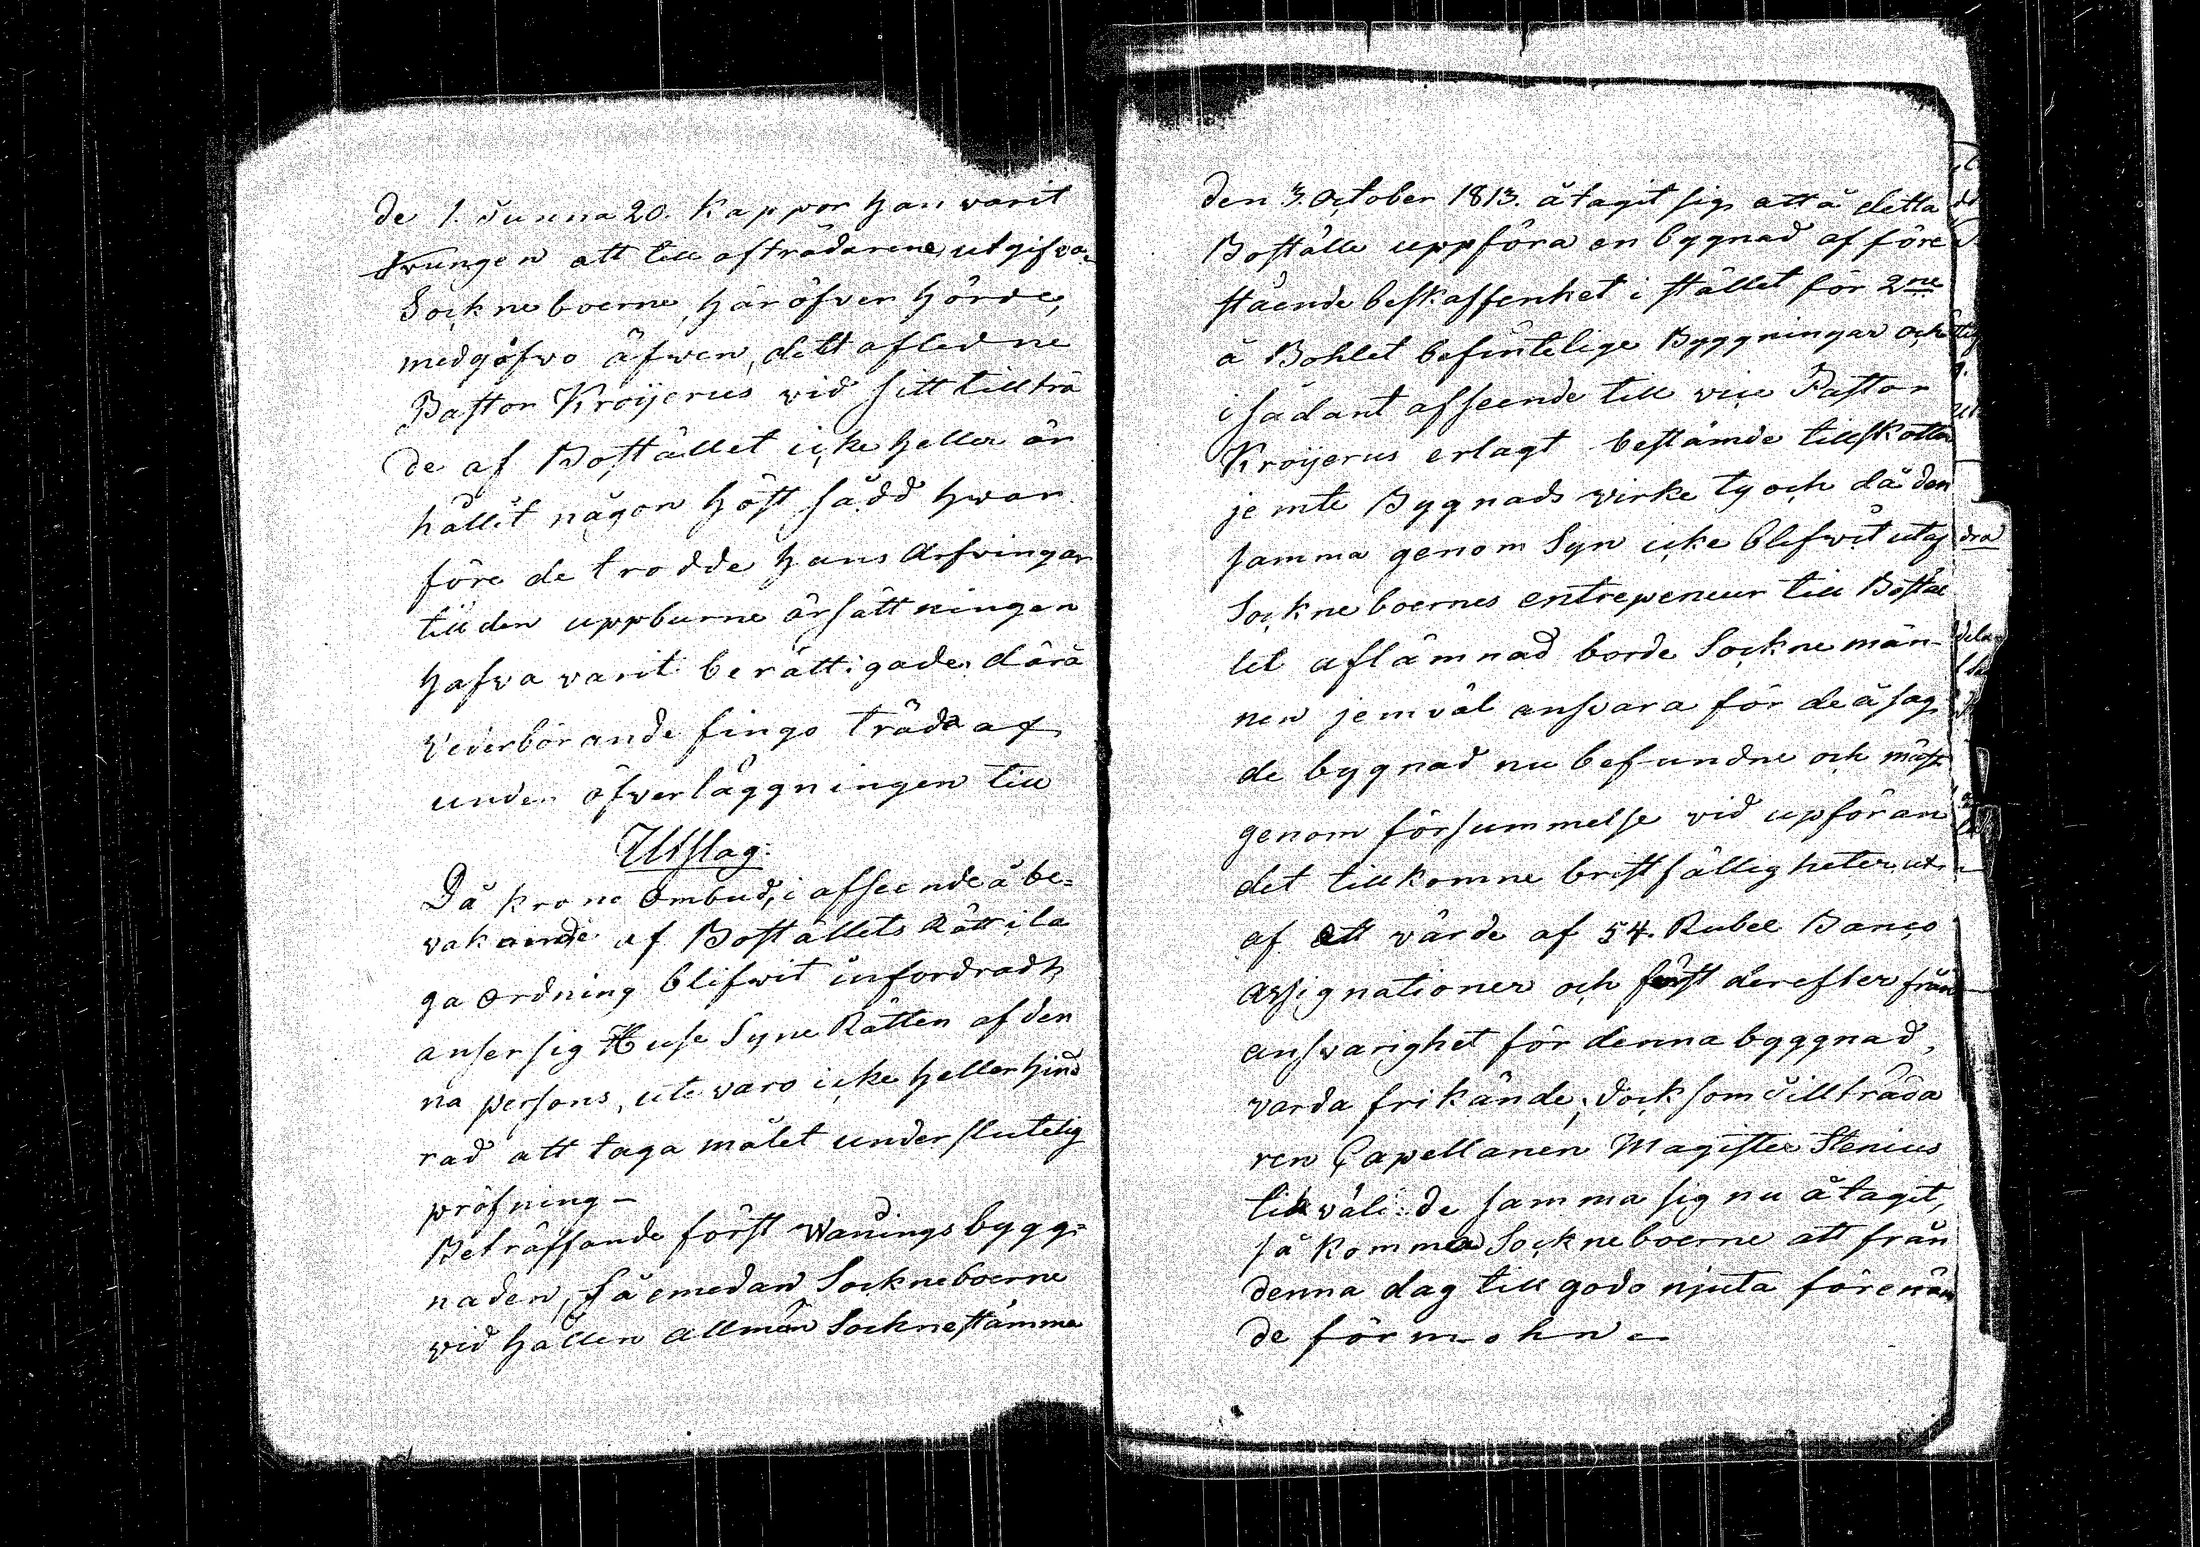 de 1. Tunna 20. Kappor han varit
tvungen att till afträdarene utgifva.
Sockneboerne, häröfver hörde,
medgåfvo äfwen, dett afledne
Pastor Kroijerus vid sitt tillträ
de af Bostället icke heller är
hållit någon höst sådd hwar
före de trodde hans Arfvingar
till den uppburne ärsättningen
hafva varit berättigade, därå
Vederbörande fingo träda af
under öfverläggningen till
Utslag:
Då krono Ombud, i afseende å be=
vakande af Boställets Rätt i la
ga Ordning blifwit infordradt,
anser sig Huse Syne Rätten af den
na persons, utevaro icke heller hind
rad att taga målet under slutelig
pröfning –
Beträffande först Waningsbygg=
naden, så emedan Sockneboerne
vid hållen allmän Sockne stämma
den 3. October 1813. åtagit sig att å detta
Boställe uppföra en bygnad af före
stående beskaffenhet i stället för 2ne
å Bohlet befintelige Byggningar och
i sådant afseende till vice Pastor
Kroijerus erlagt bestämde tillskotten
jemte Bygnads virke ty och då den
samma genom Syn icke blifwit utaf
Sockneboernes entrepeneur till Bostäl
let aflämnad borde Sockne män-
nen jemväl ansvara för de å sag
de bygnad nu befundne och mäst
genom försummelse vid upföran
det tillkomne bristfälligheter ut
af Ett värde af 54. Rubel Banco
assignationer och först derefter från
ansvarighet för denna byggnad,
varda frikände; Dock som Tillträda
ren Capellanen Magister Stenius
likväl: de samma sig nu åtagit,
så komma Sockneboerne att från
denna dag till godo njuta förenäm
de förmohn –